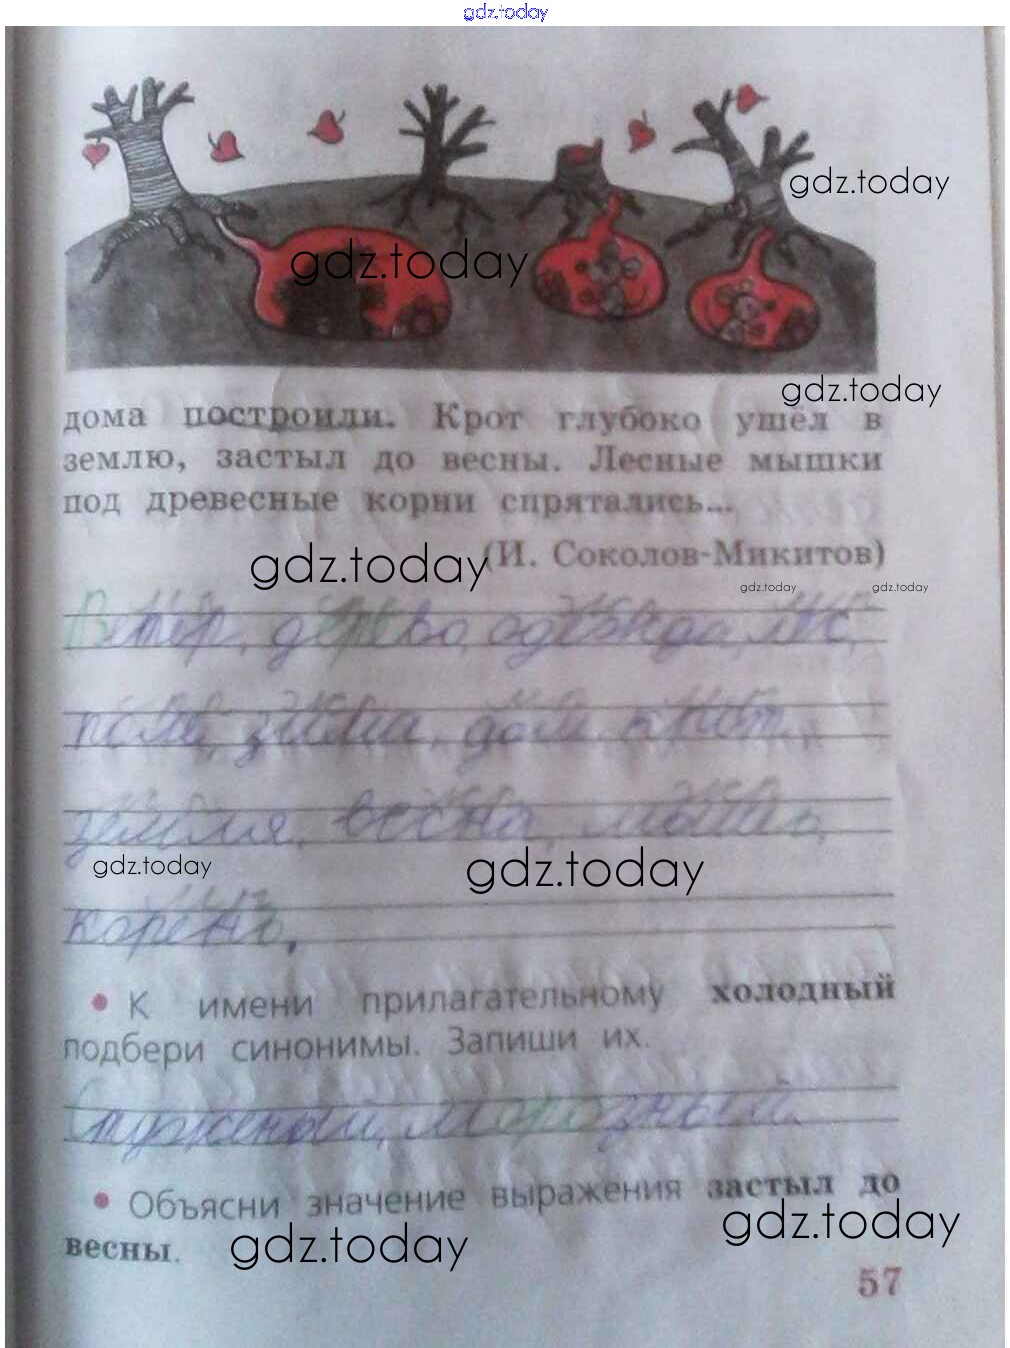 gdz.today
gdz.today
gdz.today
gdz.today
дома построили. Крот глубоко ушёл в
землю, застыл до весны. Лесные мышки
под древесные корни спрятались...
(И. Соколов-Микитов)
gdz.today
gdz.today gdz.today
Ветер, дерево, одежда, лес,
поле, зима, дом, крот,
земля, весна, мышь,
gdz.today gdz.today
корень.
• К имени прилагательному холодный
подбери синонимы. Запиши их.
Стуженый, морозный.
• Объясни значение выражения застыл до
весны.
gdz.today gdz.today
57